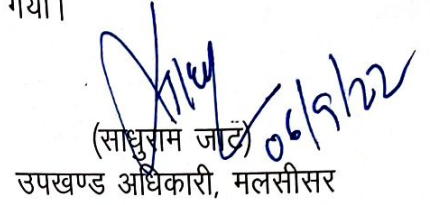 गया।
06/9/22
(साधुराम जाट)
उपखण्ड अधिकारी, मलसीसर